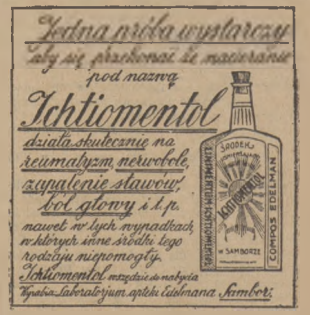 Jedna próba wystarczy
aby się przekonać że nacieranie
pod nazwą
Ichtiomentol
działa skutecznie na
reumatyzm, nerwobole,
zapalenie stawów,
ból głowy i t.p.
nawet w tych wypadkach
w których inne środki tego
rodzaju niepomogły.
Ichtiomentol wszędzie do nabycia
Wyrabia Laboratorjum apteki Edelmana Sambor.
ŚRODEK
ICHTIOMENTOL
W SAMBORZE
LINIMENTUM ICHTIOMENTOLI
COMPOS EDELMAN